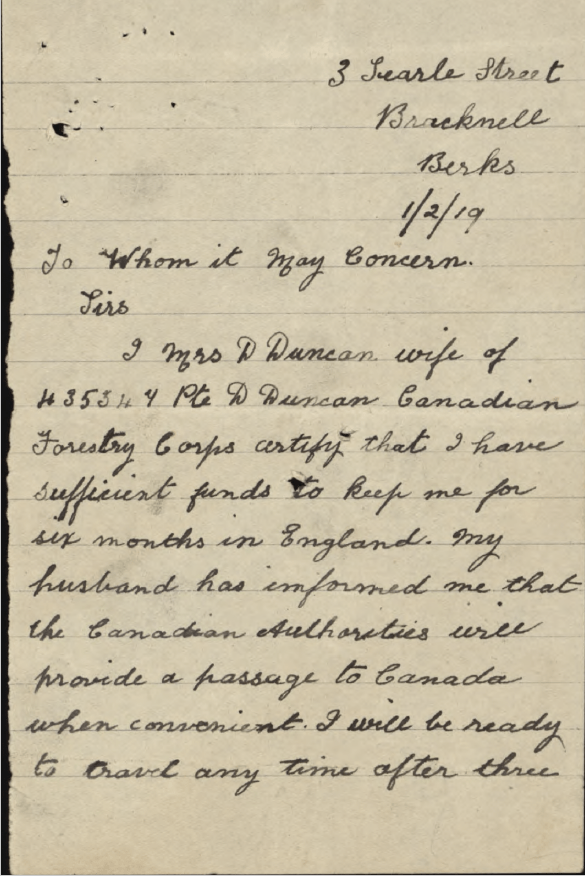 3 Searle Street
Bracknell
Berks
1/2/19
To Whom it May Concern.
Sirs
I Mrs D Duncan wife of
435344 Pte D Duncan Canadian
Forestry Corps certify that I have
sufficient funds to keep me for
six months in England. My
husband has informed me that
the Canadian Authorities will
provide a passage to Canada
when convenient. I will be ready
to travel any time after three